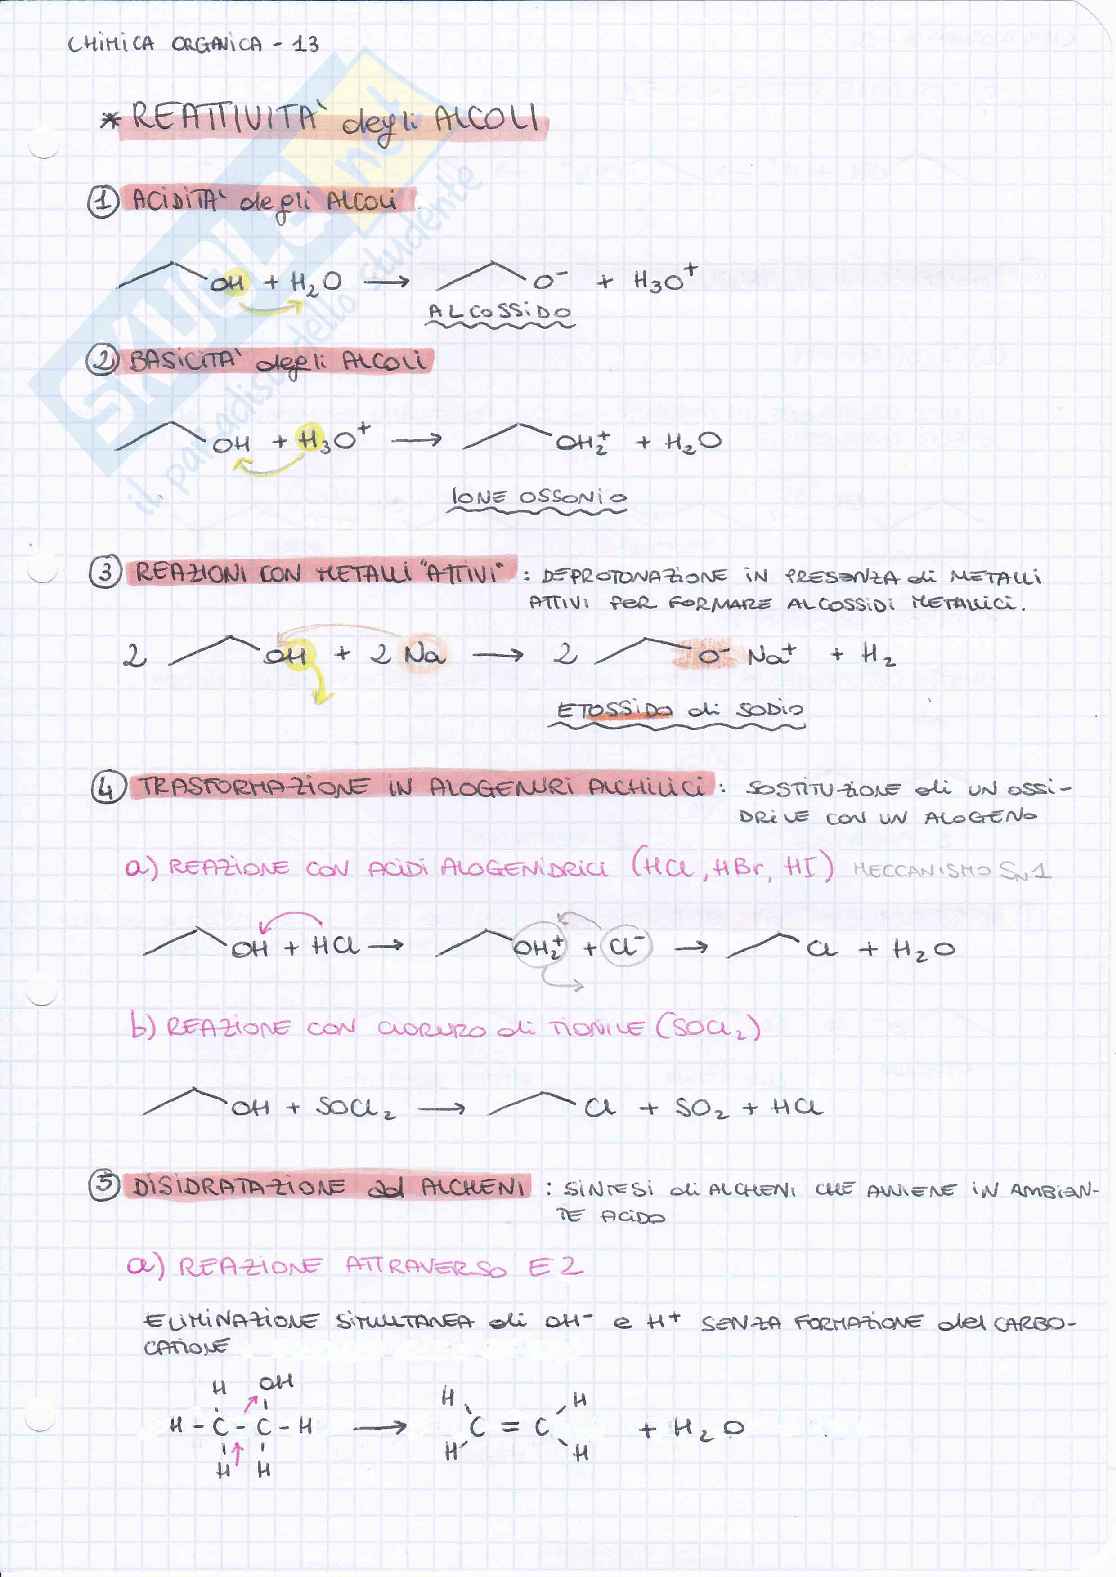 CHIMICA ORGANICA - 13
* REATTIVITA' degli ALCOLI
1 ACIDITA' degli ALCOLI
OH + H2O → O- + H3O+
ALCOSSIDO
2 BASICITA' degli ALCOLI
OH + H3O+ → OH2+ + H2O
IONE OSSONIO
3 REAZIONI CON METALLI "ATTIVI" : DEPROTONAZIONE IN PRESENZA di METALLI
ATTIVI PER FORMARE ALCOSSIDI METALLICI.
2 OH + 2 Na → 2 O- Na+ + H2
ETOSSIDO di SODIO
4 TRASFORMAZIONE IN ALOGENURI ALCHILICI : SOSTITUZIONE di UN OSSI-
DRILE CON UN ALOGENO
a) REAZIONE CON ACIDI ALOGENIDRICI (HCl, HBr, HI) MECCANISMO SN1
OH + HCl → OH2+ + Cl- → Cl + H2O
b) REAZIONE CON CLORURO di TIONILE (SOCl2)
OH + SOCl2 → Cl + SO2 + HCl
5 DISIDRATAZIONE ad ALCHENI : SINTESI di ALCHENI CHE AVVIENE IN AMBIEN-
TE ACIDO
a) REAZIONE ATTRAVERSO E2
ELIMINAZIONE SIMULTANEA di OH- e H+ SENZA FORMAZIONE del CARBO-
CATIONE
H OH H H
H - C - C - H → C = C + H2O
H H H H
SKUOLA.net
il paradiso dello studente